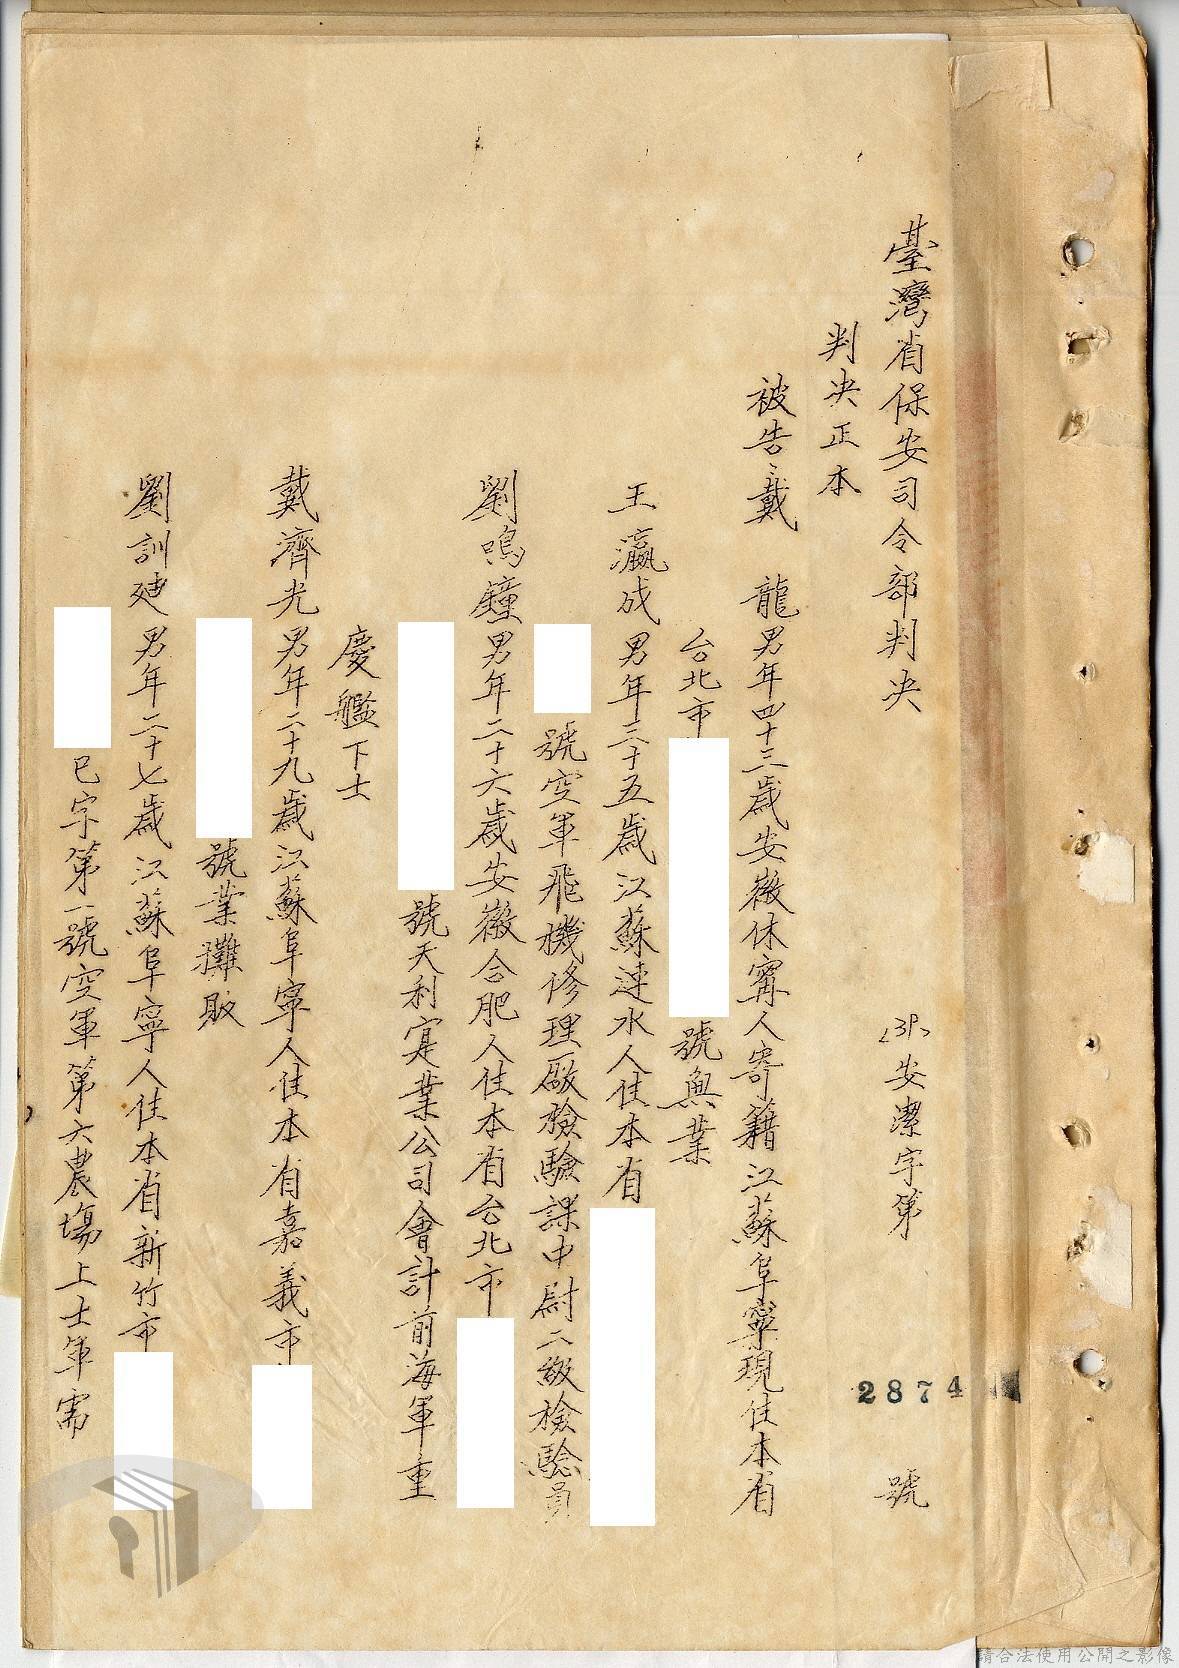 臺灣省保安司令部判决
安潔字第
2874
號
判决正本
被告戴 龍男年四十三歲安徽休甯人寄籍江蘇阜寧現住本省
台北市
號無業
王瀛成男年三十五歲江蘇漣水人住本省
號空軍飛機修理廠檢驗課中尉二級檢驗員
劉鳴鐘男年二十六歲安徽合肥人住本省台北市
號天利寔業公司會計前海軍重
慶艦下士
戴濟光男年二十九歲江蘇阜寧人住本省嘉義市
號業攤販
劉訓廸男年二十七歲江蘇阜寧人住本省新竹市
巳字第一號空軍第六農場上士軍需
請合法使用公開之影像